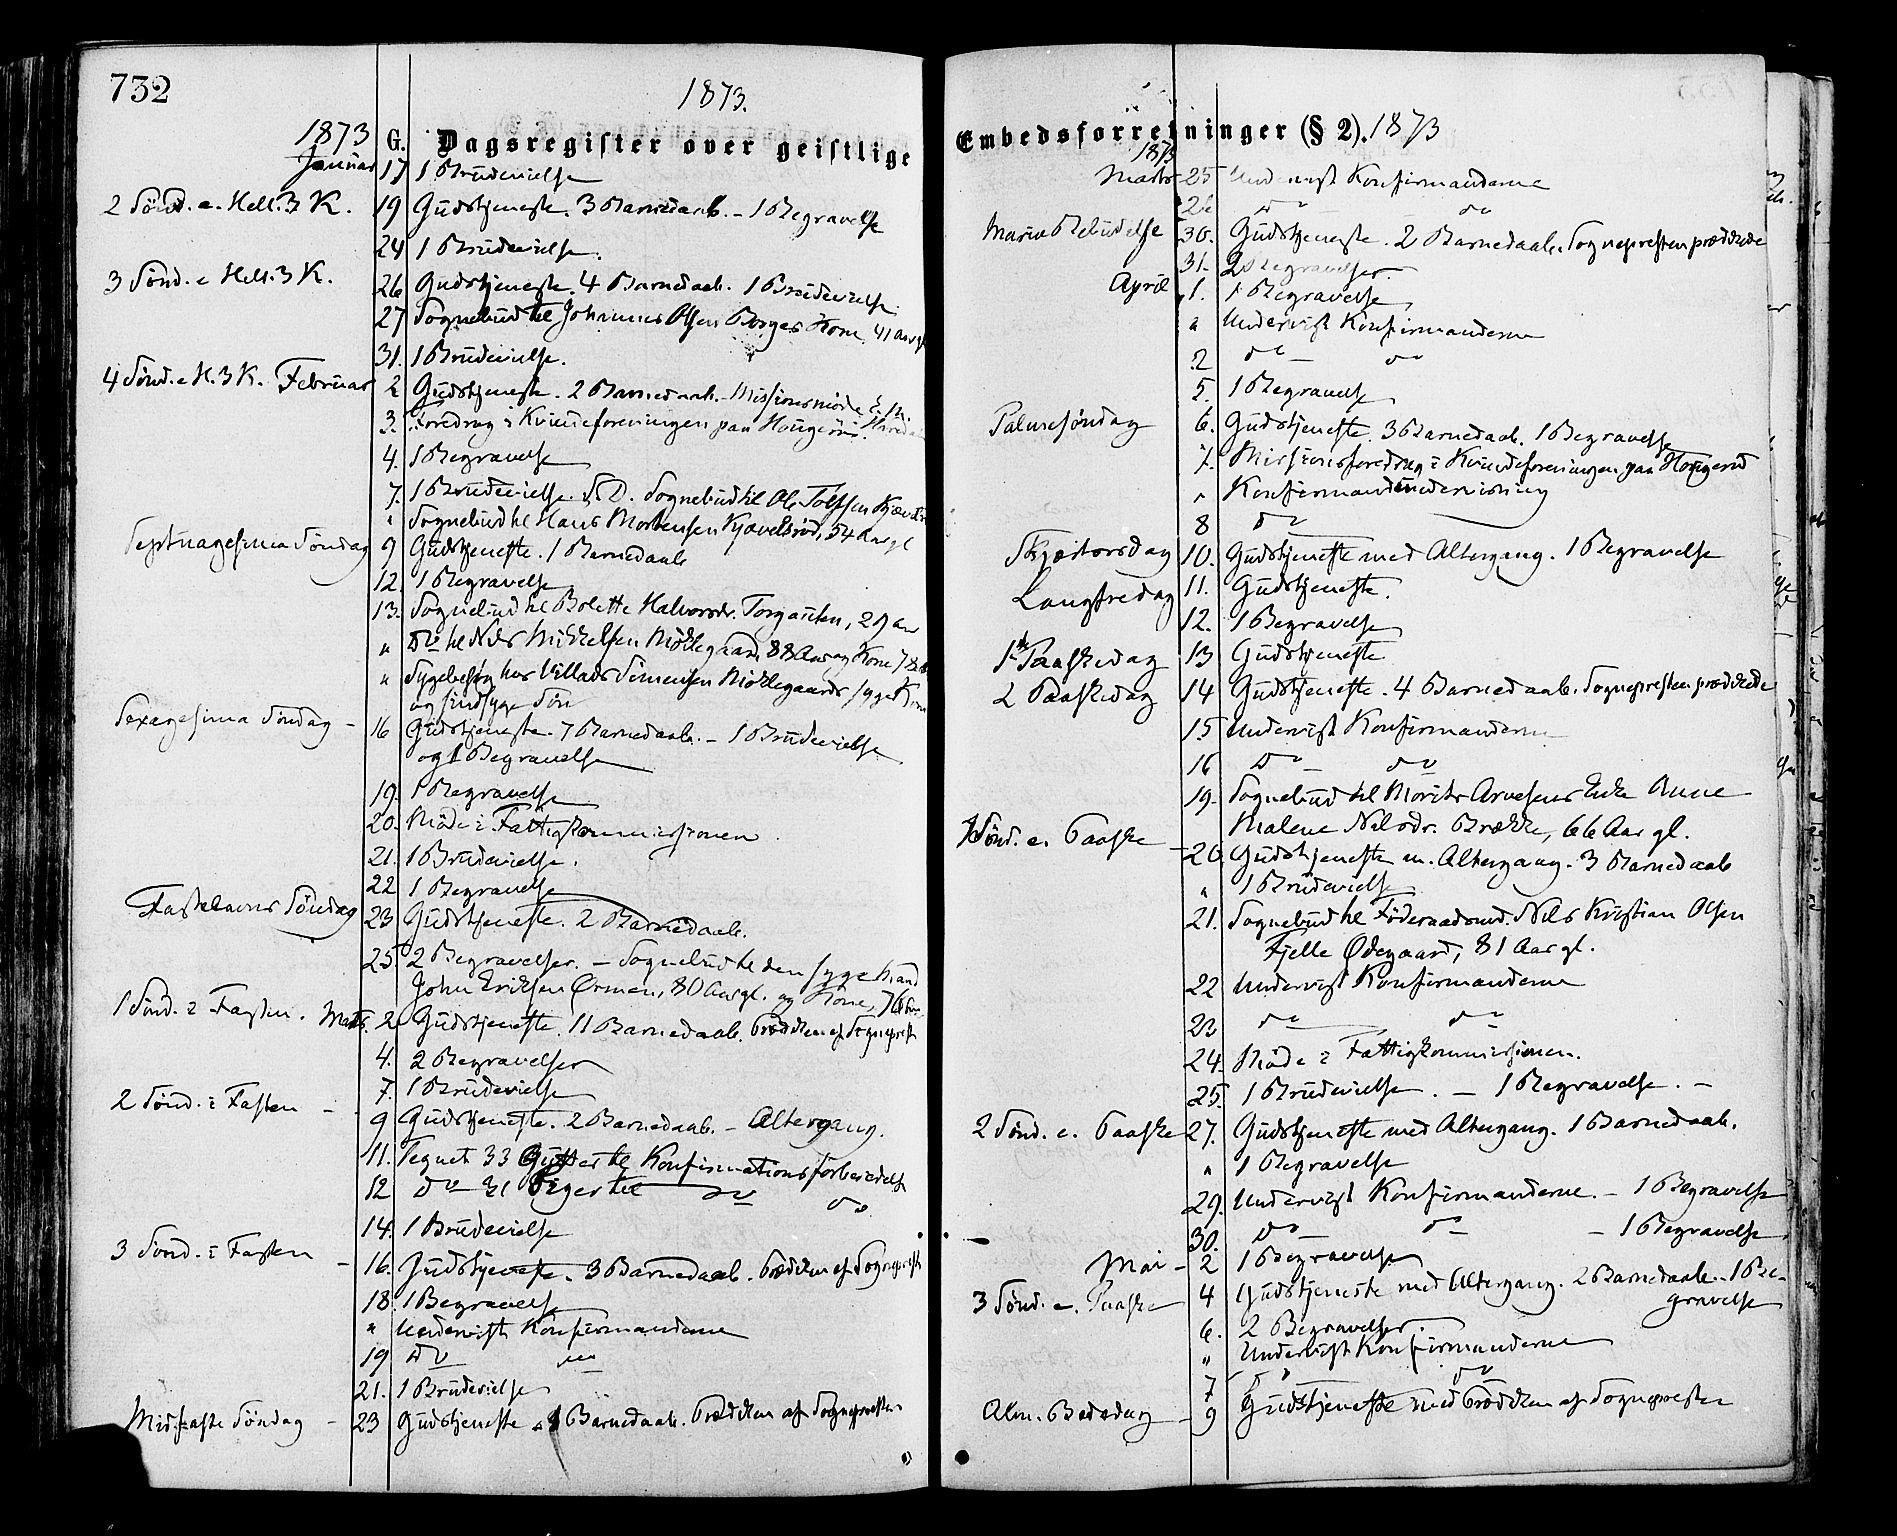 732
1873.
1873 G. Dagsregister over geistlige
Januar 17 1 Brudevielse
2 Sønd. e. Hell. 3 K. 19 Gudstjeneste. 3 Barnedaab. - 1 Begravelse
24 1 Brudevielse.
3 Sønd. e Hell. 3 K. 26 Gudstjeneste. 4 Barnedaab. 1 Brudevielse
27 Sognebud til Johannes Olsen Borges Kone, 41 Aar gl
31. 1 Brudevielse.
4 Sønd. e H. 3 K. Februar 2 Gudstjeneste. 2 Barnedaab. - Missionsmøde
3. Foredrag i Kvindeforeningen paa Hougerud.
4. 1 Begravelse
7. 1 Brudevielse. S. D. Sognebud til Ole Tolfsen
" Sognebud til Hans Mortensen Kjævelsrød, 54 Aar gl
Septuagesima Søndag 9 Gudstjeneste. 1 Barnedaab
12. 1 Begravelse
13. Sognebud til Bolette Halvorsdr. Torgauten, 29 aar
" Do til Niels Mikkelsen Møklegaard 88 Aar og Kone
" Sygebesøg hos Villads Simensen Møklegaards syge Kone
og sindsyge Søn
Sexagesima Søndag - 16 Gudstjeneste. 7 Barnedaab. - 1 Brudevielse
og 1 Begravelse
19. 1 Begravelse
20. Møde i Fattigkommissionen.
21. 1 Brudevielse.
22 1 Begravelse
Fastelavns Søndag 23 Gudstjeneste. 2 Barnedaab.
25 2 Begravelser. - Sognebud til den syge Mand
John Eriksen Ørmen, 80 Aar gl. og Kone, 76
1 Sønd. i Fasten. Marts. 2 Gudstjeneste. 11 Barnedaab. Prædiken af Sognepresten
4. 2 Begravelser
7. 1 Brudevielse
2 Sønd. i Fasten - 9 Gudstjeneste. 2 Barnedaab. - Altergang.
11. Tegnet 33 Gutter til Konfirmationsforberedelse
12 Do 31 Piger til Do Do
14. 1 Brudevielse
3 Sønd. i Fasten - 16. Gudstjeneste. 3 Barnedaab. Prædiken af Sognepresten
18. 1 Begravelse
" Undervist Konfirmanderne
19 Do "
21. 1 Brudevielse
Midfaste Søndag - 23 Gudstjeneste. 8 Barnedaab. Prædiken af Sognepresten
Embedsforretninger (§ 2). 1873
1873
Marts 25 Undervist Konfirmanderne
26 Do - do
Mariæ Bebudelse 30. Gudstjeneste. 2 Barnedaab. Sognepresten prædikede
31. 2 Begravelser.
April 1. 1 Begravelse
" Undervist Konfirmanderne
2 do - do
5. 1 Begravelse
Palmesøndag 6. Gudstjeneste. 3 Barnedaab. 1 Begravelse
7. Missionsforedrag i Kvindeforeningen paa Hougerud
" Konfirmandundervisning
8 Do
Skjærtorsdag 10. Gudstjeneste med Altergang. 1 Begravelse
Langfredag 11. Gudstjeneste.
12. 1 Begravelse
1ste Paaskedag 13 Gudstjeneste
2 Paaskedag 14 Gudstjeneste. 4 Barnedaab. Sognepresten prædikede
15 Undervist Konfirmanderne
16 Do - do
19. Sognebud til Morits Arvesens Enke Anne
Malene Nilsdr. Brække, 66 Aar gl.
1 Sønd. e. Paaske - 20. Gudstjeneste m. Altergang. 3 Barnedaab
" 1 Brudevielse
21. Sognebud til Føderaadsmd. Nils Kristian Olsen
Fjelle Ødegaard, 81 Aar gl.
22 Undervist Konfirmanderne
23 do do
24. Møde i Fattigkommissionen.
25. 1 Brudevielse. - 1 Begravelse. -
2 Sønd. e. Paaske 27. Gudstjeneste med Altergang. 1 Barnedaab.
" 1 Begravelse
29. Undervist Konfirmanderne. - 1 Begravelse
30. Do - do - 1 Begravelse
Mai - 2 1 Begravelse
3 Sønd. e. Paaske 4 Gudstjeneste med Altergang. 2 Barnedaab. 1 Be-
gravelse
6. 2 Begravelser.
" Undervist Konfirmanderne
7 do do
Alm. Bededag - 9 Gudstjeneste med Prædiken af Sognepresten